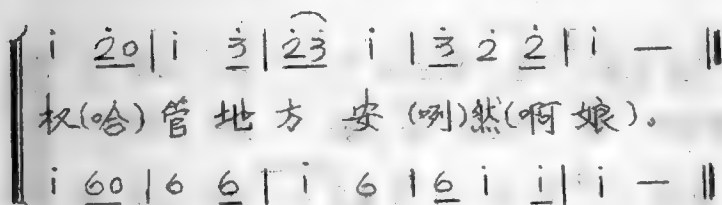 i̇ 2̇0 | i̇ 3̇ | 2̇3̇ i̇ | 3̇ 2̇ 2̇ | i̇ — ‖
权(哈)管地方安(咧)然(啊娘)。
i̇ 60 | 6 6 | i̇ 6 | 6 i̇ i̇ | i̇ — ‖